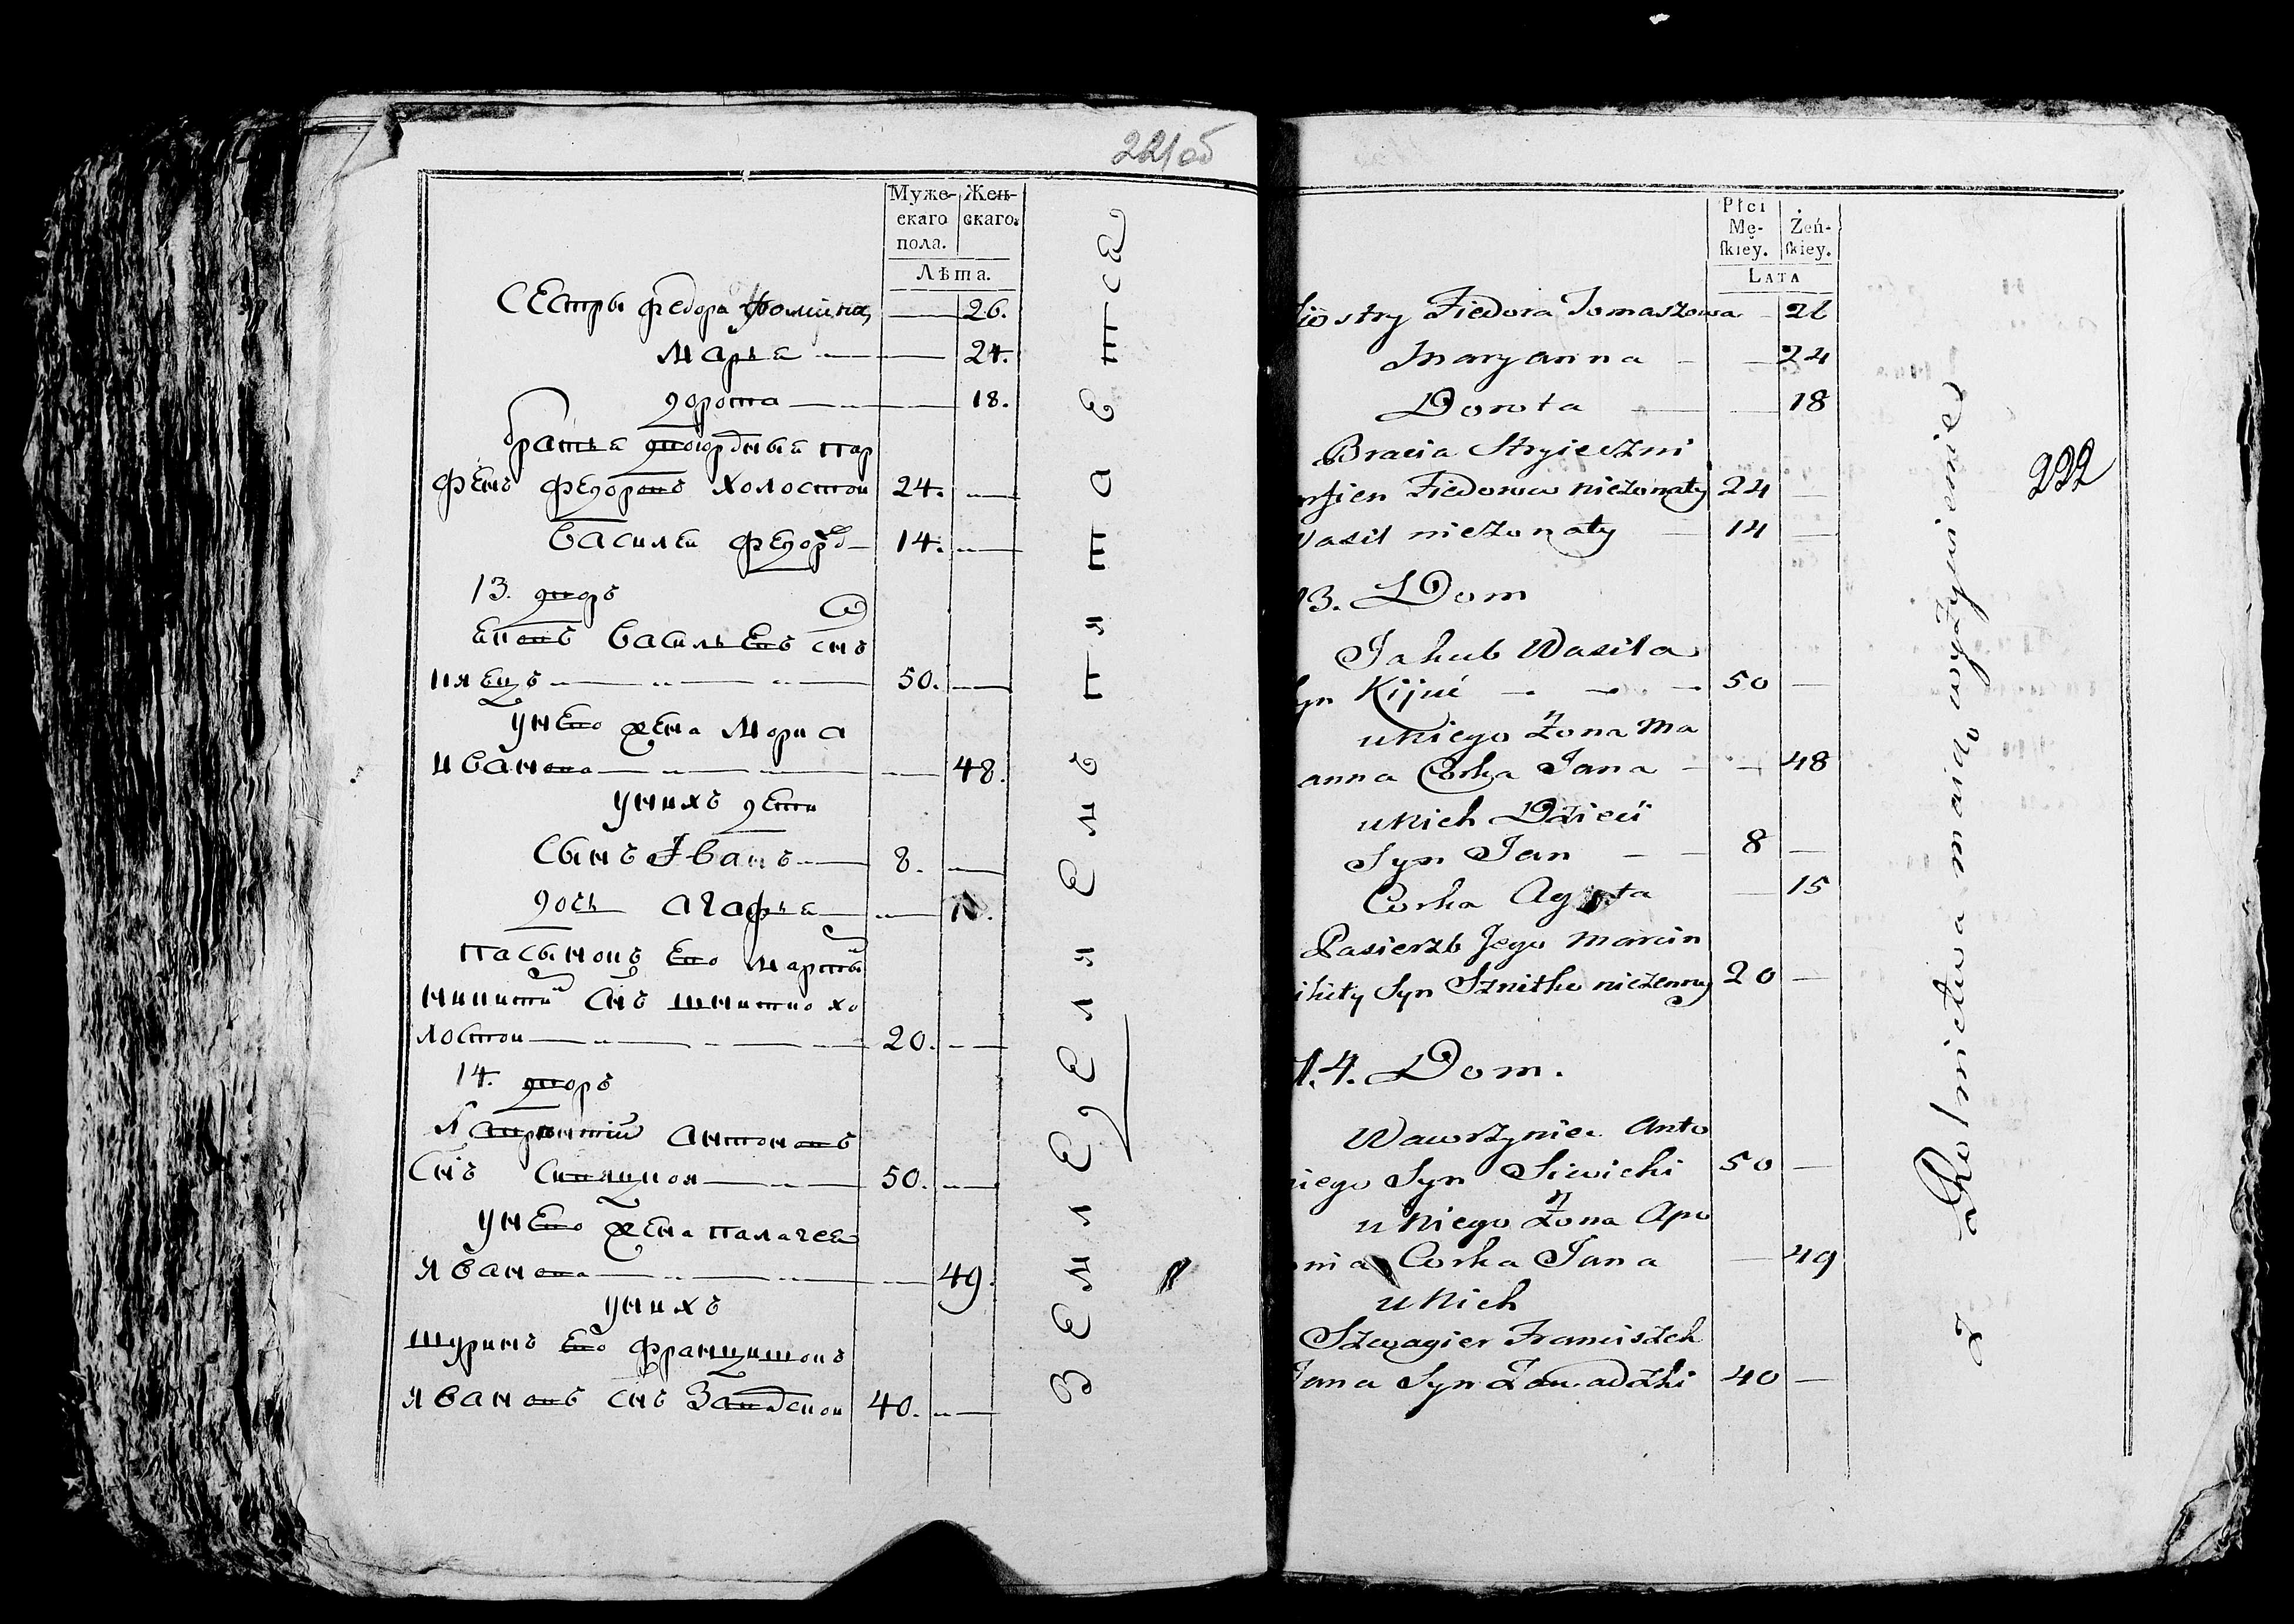 221об
Муже- Жен-
скаго скаго.
пола.
Лѣта.
Сестры Федора Фомина 26.
Марья 24.
дорота 18.
братья двоюрдныя пар
фенъ федоровъ холостои 24.
Василеи федоро 14.
13. дворъ
Василь евъ снъ
50.
унево жена Мориа
ивановна 48.
унихъ дети
Сынъ Іванъ 8.
дочь агафья
пасынокъ ево мартын
микитин снъ шнитко хо
лостои 20.
14. дворъ
Лаврентіи антоновъ
снъ Сивицкои 50.
унево жена палагея
иванова 49.
унихъ
шуринъ ево францишокъ
ивановъ снъ Завдскои 40.
Земледелиемъ питается
Płci
Mę- Żeń-
skiey. skiey.
Lata
Siostry Fiedora Tomaszowa 26
Maryanna 24
Dorota 18
Bracia Stryieczni
Fiedorow niezonaty 24
Wasil niezonaty 14
13. Dom
Jakub Wasila
Syn Kijuć 50
u niego Żona Ma
anna Corka Jana 48
u nich Dzieci
Syn Jan 8
Corka Agata 15
Pasierzb Jego Marcin
ikity Syn Sznitko nieżenny 20
14. Dom.
Wawrzyniec Anto
niego Syn Siwicki 50
u niego Żona Apo
onia Corka Jana 49
u nich
Szwagier Franciszek
Jana Syn Zawadzki 40
z Rolnictwa maią wyżywienie
222